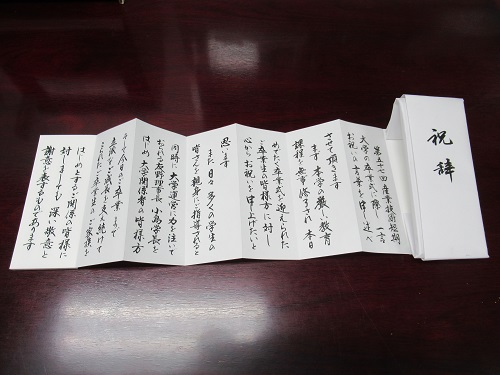 祝辞
第五十七回 産業技術短期
大学の卒業式に際し 一言
お祝いの言葉を申し述べ
させて頂きます
ます 本学の厳しい教育
課程を無事修了され 本日
めでたく卒業式を迎えられた
ご卒業生の皆様方に対し
心からお祝いを申し上げたいと
思います
また 日々 多くの学生の
皆さんを熱心にご指導される
同時に 大学運営に力を注いで
おられる 理事長 小島学長を
はじめ 大学関係者の皆様方
そして今日のご卒業まで
こられたご卒業生のご家族を
はじめとするご関係の皆様に
対しましても 深い敬意と
謝意を表するものであります